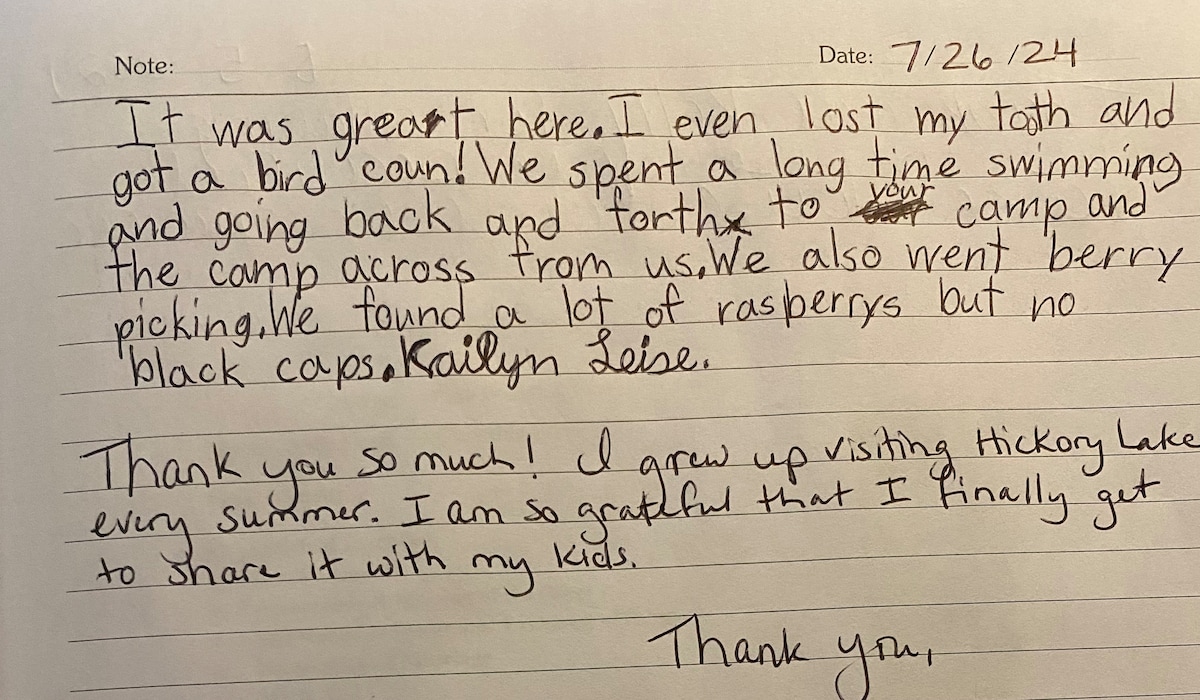 Note:
Date: 7/26/24
It was greart here. I even lost my tooth and
got a bird coun! We spent a long time swimming
and going back and forth to your camp and
the camp across from us. We also went berry
picking. We found a lot of rasberrys but no
black caps. Kailyn Leise.
Thank you so much! I grew up visiting Hickory Lake
every summer. I am so grateful that I finally get
to share it with my kids.
Thank you,